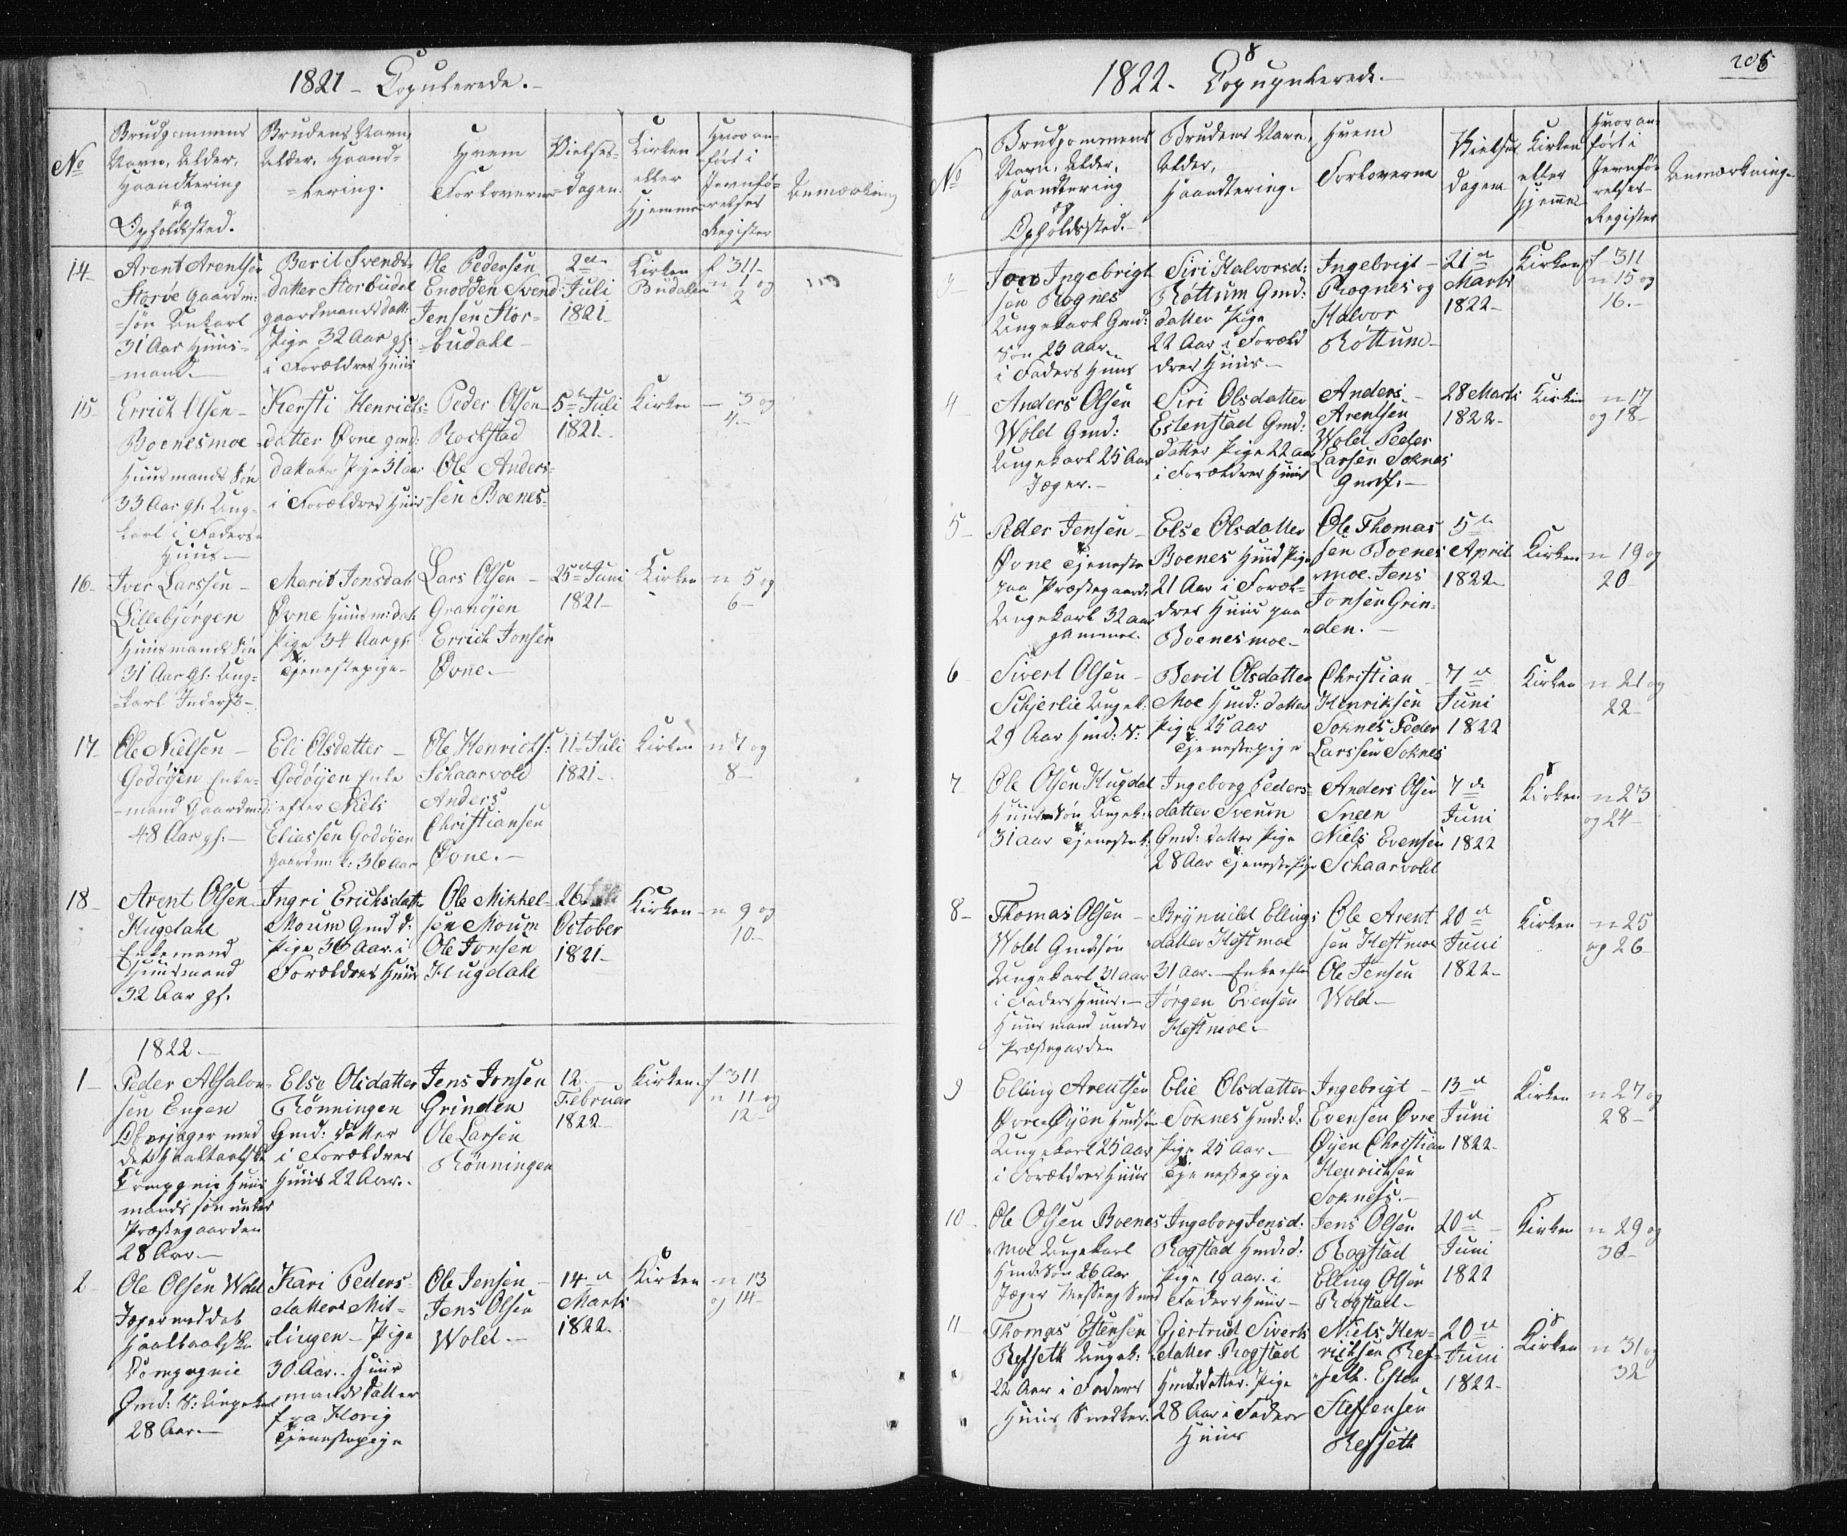 1821 - Copulerede.
No
Brudgommens
Navn, Alder,
Haandtering
og
Opholdssted.
Brudens Navn,
Alder, Haand-
tering.
Hvem
Forloverne
Vielses-
dagen.
Kirken
eller
Hjemme
Hvor an-
ført i
Jevnfø-
relses
Register
Anmærkning
14
Arent Arentsen
Storøe Gaardm:
søn Unkarl
31 Aar Huus-
mand.
Berit Svends-
datter Storbudal
gaardmands datt:
Pige 32 Aar gl.
i Forældres Huus
Ole Pedersen
Enodden Svend
Jensen Stor-
budahl
2den
Juli
1821
Kirken
Budalen
f 311
n 1 og
2
15
Errich Olsen
Boenesmoe
Huusmands Søn
33 Aar gl. Ung-
karl i Faders
Huus
Kersti Henrichs-
datter Øvne gmd:
datter Pige 31 aar
i Forældres Huus
Peder Olsen
Rockstad
Ole Anders-
sen Boenes
5te Juli
1821
Kirken
3 og
4
16
Iver Larssen
Lillebjørgen
Huusmands Søn
31 Aar gl. Ung-
karl Inderst
Marit Jonsdatt
Øvne Huusm: datt
Pige 34 Aar gl.
Tjenestepige
Lars Olsen
Granøjen
Errich Jonsen
Øvne.
25de Juni
1821
Kirken
n 5 og
6
17
Ole Nielsen
Godøyen Enke-
mand Gaardm:
48 Aar gl.
Eli Olsdatter
Godøyen Enke
efter Niels
Eliassen Godøyen
gaardm: 36 Aar
Ole Henrichs:
Schaarvold
Anders
Christiansen
Øvne.
11te Juli
1821
Kirken
n 7 og
8
18
Arent Olsen
Hugdahl
Enkemand
Huusmand
32 Aar gl.
Ingri Erichsdatt
Moum Gmd d:
Pige 36 Aar i
Forældres Huus
Ole Mikkel-
sen Moum
Ole Jonsen
Hugdahl
26
October
1821
Kirken
n 9 og
10
1822
1
Peder Absalon-
sen Engen
Compgnie Huus
mands søn under
Præstegaarden
28 Aar
Else Olsdatter
Rønningen
Gmd: datter
i Forældres
Huus 22 Aar.
Jens Jonsen
Grinden
Ole Larsen
Rønningen
12
Februar
1822
Kirken
f 311
n 11 og
12
2
Ole Olsen Wold
Jæger ved det
Compagnie
Gmd: S: Ungekarl
28 Aar
Kari Peders-
datter Mit-
lingen Pige
30 Aar Huus
mands datter
fra Horig
Tjenestepige
Ole Jensen
Jens Olsen
Wold
14de
Marts
1822
Kirken
n 13
og 14
1822 - Copupulerede.
206
No
Brudgommens
Navn, Alder,
Haandtering
og
Opholdssted.
Brudens Navn,
Alder,
Haandtering.
Hvem
Forloverne
Vielses
dagen
Kirken
eller
Hjemme
Hvor an-
ført i
Jevnfø-
relses-
Register
Anmærkning
3
Jon Ingebrigt
sen Rognes
Ungekarl Gmd:
Søn 23 aar
i Faders Huus
Siri Halvorsd:
Røttum Gmd:
datter Pige
22 Aar i Foræld
dres Huus
Ingebrigt
Rognes og
Halvor
Røttum
21de
Marts
1822
Kirken
f 311
n 15 og
16
4
Anders Olsen
Wold Gmd:
Ungekarl 25 Aar
Jæger.
Siri Olsdatter
Estenstad Gmd:
datter Pige 22 aar
i Forældres Huus
Anders
Arentsen
Wold Peder
Larsen Soknes
28 Marts
1822
Kirken
n 17
og 18
5
Peder Jensen
Øvne Tjeneste
paa Præstegaard:
Ungekarl 32 aar
gammel.
Else Olsdatter
Boenes Huus Pige
21 Aar i Foræl-
dres Huus paa
Boenesmoe
Ole Thomas
sen Boenes
moe. Jens
Jonsen Grin-
den.
5te
April
1822
Kirken
n 19 og
20
6
Sivert Olsen
Schjerlie Ungek:
29 Aar Hmd: S:
Berit Olsdatter
Moe Hmd: datter
Pige 25 Aar
Tjenestepige
Christian
Henriksen
Soknes Peder
Larssen Soknes
7de
Juni
1822
Kirken
n 21 og
22
7
Ole Olsen Hugdal
Huusm Søn Ungek:
31 aar Tjenestek.
Ingeborg Peders-
datter Svenn
Gmd: datter Pige
28 Aar Tjenestepige
Anders Olsen
Sneen
Niels Evensen
Schaarvold
7de
Juni
1822
Kirken
n 23
og 24
8
Thomas Olsen
Wold Gmdsøn
Ungekarl 31 aar
i Faders Huus.
Huusmand under
Præstegarden
Brynnild Ellings
datter Hostmoe
31 Aar. Enke efter
Jørgen Evensen
Hostmoe
Ole Arent
sen Hostmoe
Ole Jensen
Wold
20de
Juni
1822
Kirken
n 25
og 26
9
Elling Arentsen
Øvre Øyen Hmdsøn
Ungekarl 25 aar
i Forældres Huus
Elie Olsdatter
Soknes Hmd: d:
Pige 25 Aar.
Tjenestepige
Ingebrigt
Evensen Øvre
Øyen Christian
Henrichsen
Soknes.
13de
Juni
1822
Kirken
n 27 og
28
10
Ole Olsen Boenes
moe Ungekarl
Hmds Søn 26 Aar
Jæger Messing Smed
Ingeborg Jensd.
Rogstad Hmd: d:
Pige 19 aar i
Faders Huus
Jens Olsen
Rogstad
Elling Olsen
Rogstad
20de
Juni
1822
Kirken
n 29 og
30
11
Thomas Estensen
Refseth Ungek:
22 Aar i Faders
Huus Smedker
Gjertrud Siverts
datter Rogstad
Hmd: datter. Pige
28 Aar i Faders
Huus
Niels Hen-
richsen Ref-
seth. Esten
Steffensen
Refseth
20de
Juni
1822
Kirken
n 31 og
32